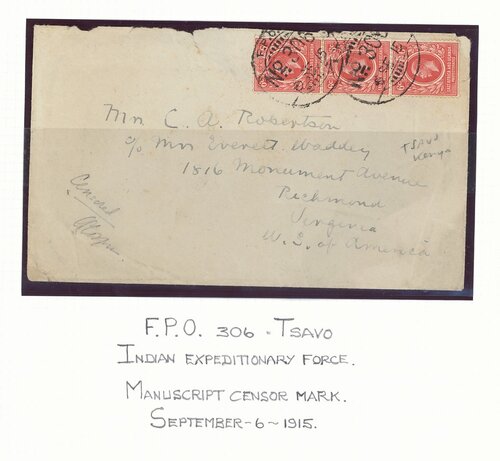 F.P.O.
No. 306
No. 306
Mrs C. A. Robertson
c/o Mrs Everett Waddey
TSAVO
Kenya
1816 Monument Avenue
Richmond
Virginia
U. S. of America
Censored
F.P.O. 306 - TSAVO
INDIAN EXPEDITIONARY FORCE.
MANUSCRIPT CENSOR MARK.
SEPTEMBER-6~1915.